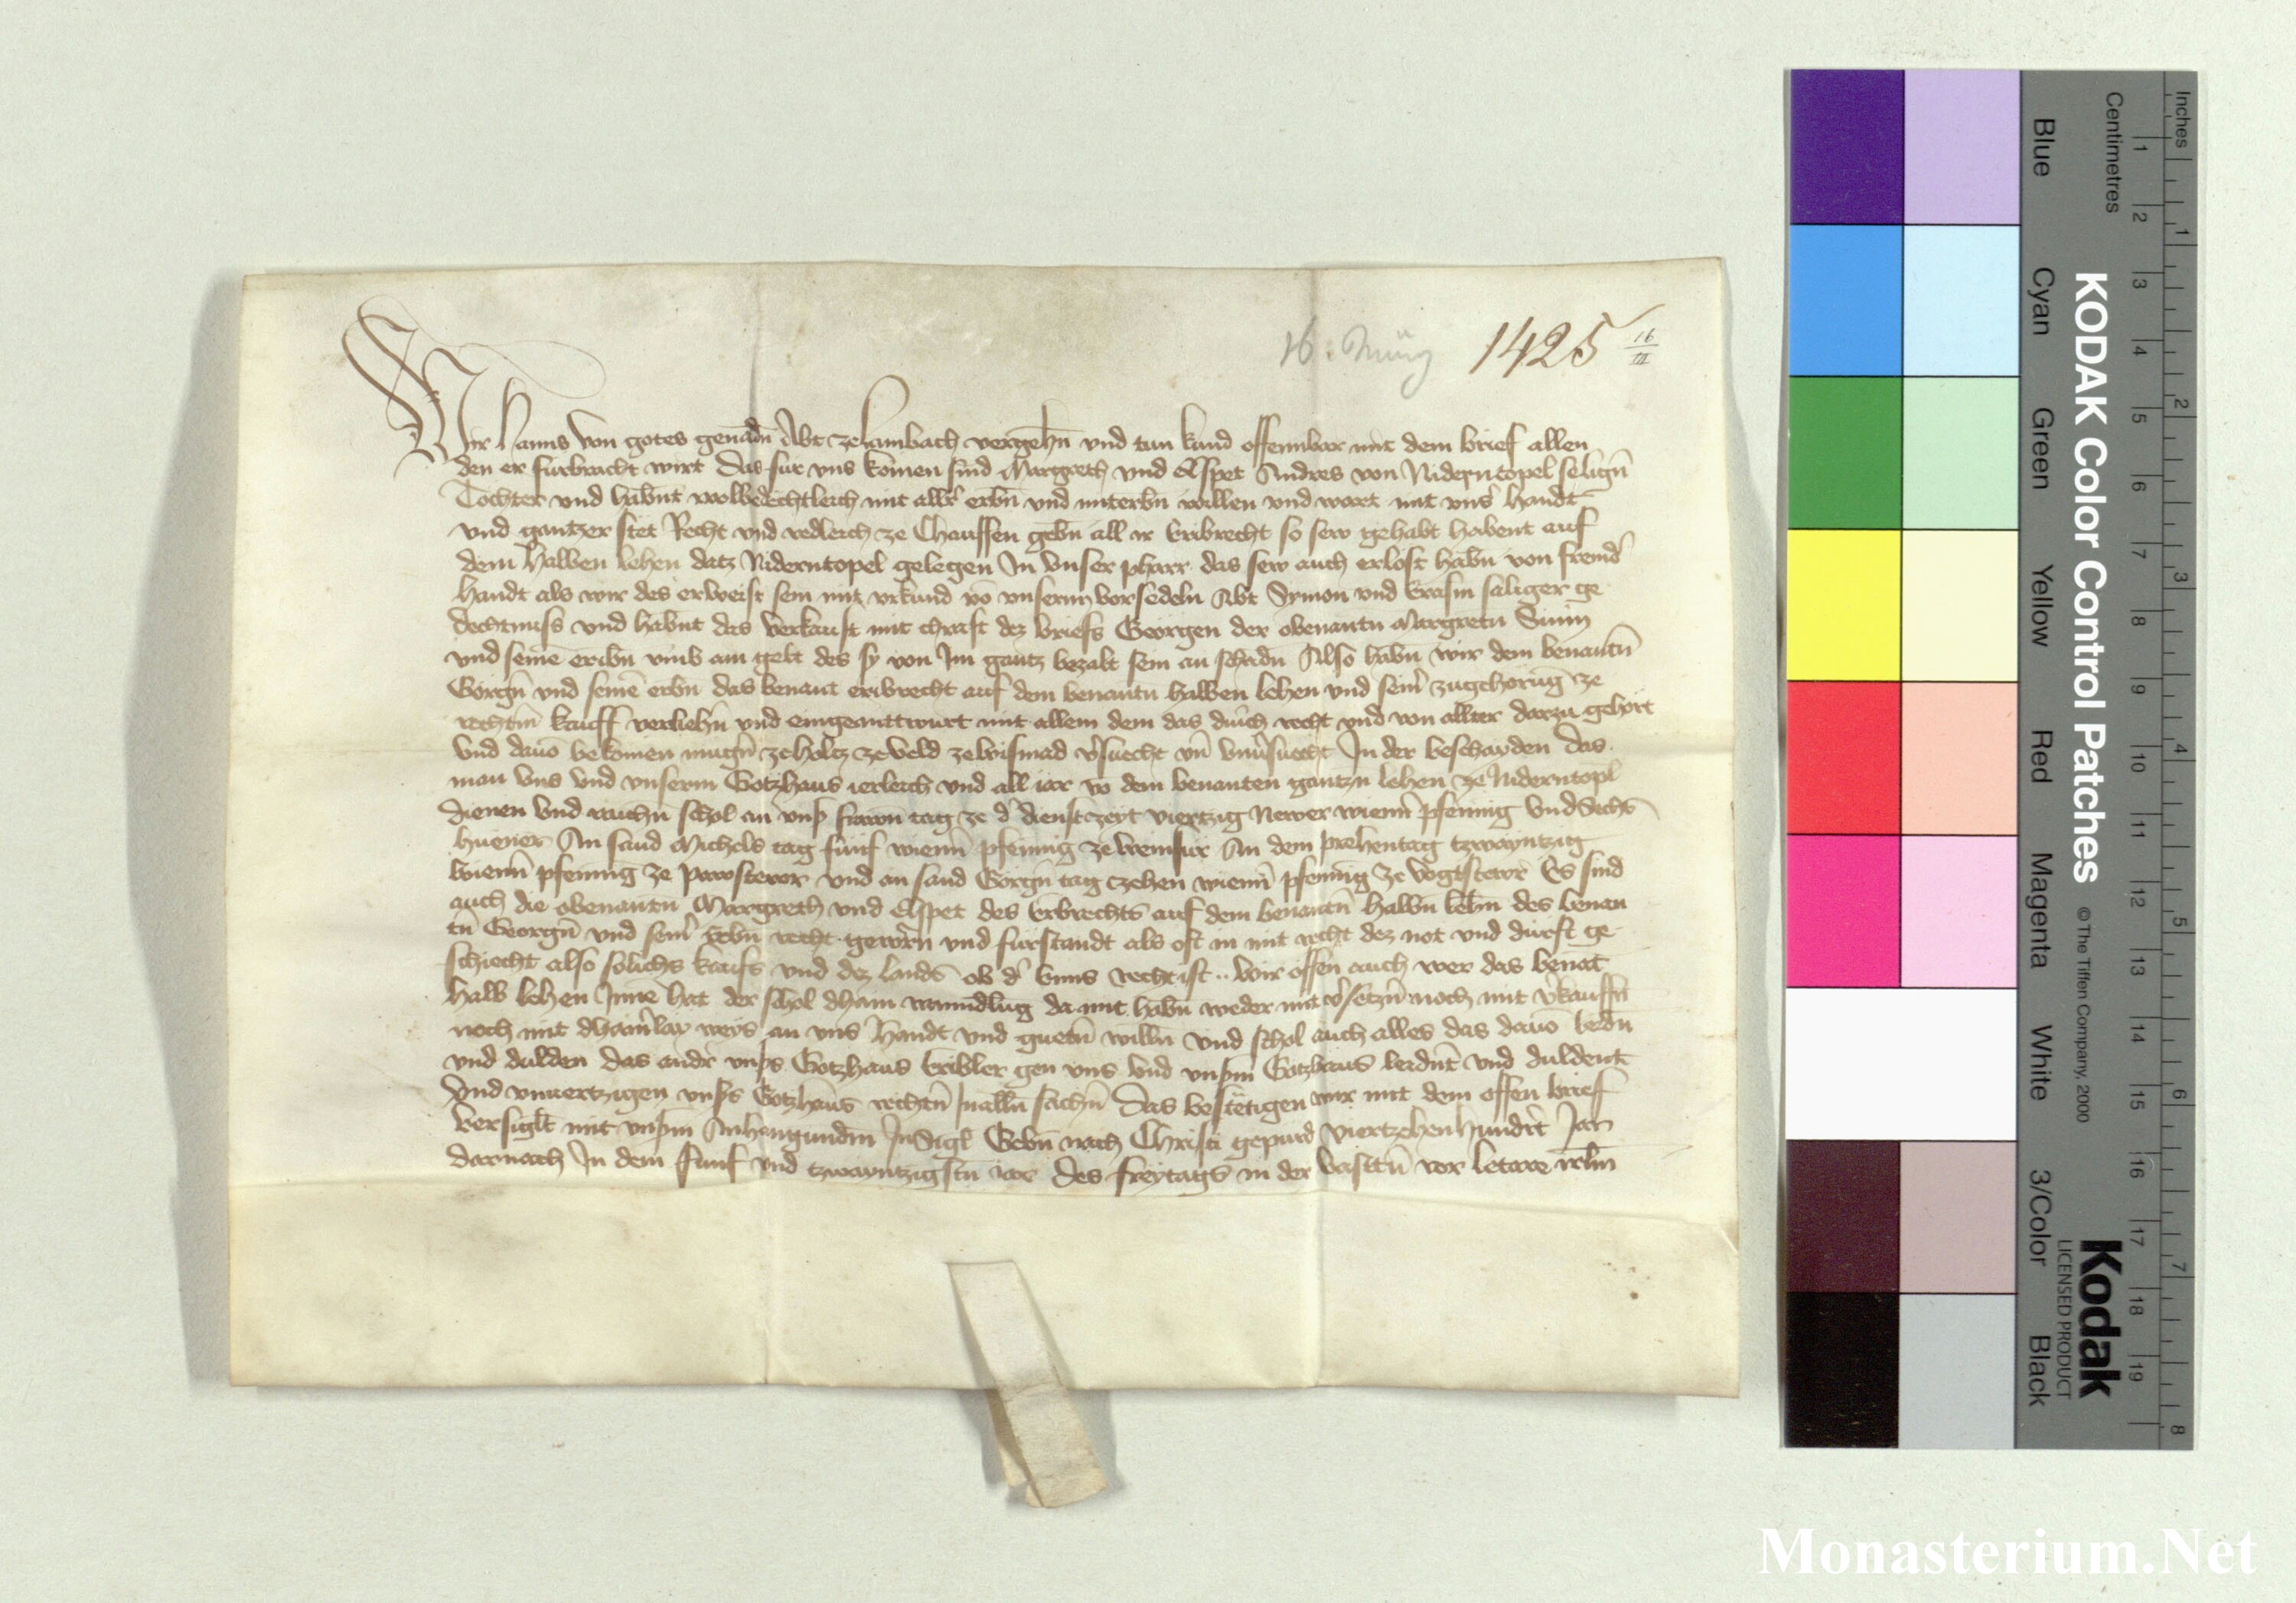 16. März 1425 16/III
Wir Hanns von gotes genadn̄ Abt ze lambach vergehn̄ vnd tun kund offennbar mit dem brief allen
den er furbracht wirt das fur vns komen sind Margreth vnd Elspet Andres von Niderntopel selign̄
Tochter vnd habnt wolbedechtleich mit allr̄ erbn̄ vnd miterbn willen vnd wort mit vnsr̄ handt
vnd gantzer stet Recht vnd redleich ze Chauffen gebn̄ all ir Eribrecht so sew gehabt habent auf
dem halben lehen datz Niderntopel gelegen In vnser pharr das sew auch erlost habn̄ von fremdr̄
handt als wir des erweist sein mit vrkund vō vnserm vorfedeln Abt Symon vnd Erasm saliger ge
dechtnuss vnd habnt das verkauft mit chraft dez briefs Georgen der obenantn Margretn Sunn
vnd seinē eribn̄ vmb ain gelt des sy von Im gantz bezalt sein an schadn̄ Also habn̄ wir dem benantn̄
Gorgn̄ vnd seinē erbn̄ das benant eribrecht auf dem benantn halben lehen vnd seinr̄ zugehorūg ze
rechtm̄ kauff verliehn̄ vnd eingeanttwurt mit allem dem das durch recht vnd von allter darzu gehort
vnd dauō bekomen mugn̄ ze holtz ze veld ze wismad vr̄suecht vn̄ vnur̄suecht In der beschayden das
man vns vnd vnserm Gotzhaus ierleich vnd all iar vō dem benanten gantzn lehen ze Niderntopl
dienen vnd raichn̄ schol an vnsr̄ frawn̄ tag ze dr̄ dienstzeyt viertzig Newer wienn̄ pfennig vnd Sechs
huener An sand Michels tag funf wienn̄ pfennig ze weinfur An dem prehentag tzwayntzig
wienn̄ pfennig ze pawstewr vnd an sand Gorgn̄ tag czehen wienn̄ pfennig ze vogtstewr Es sind
auch die obenantn Margreth vnd Elspet des Erbrechts auf dem benantn̄ halbn̄ lehn̄ des benan
tn̄ Georgn̄ vnd seinr̄ erbn̄ recht gewern̄ vnd furstandt als oft in mit recht dez not vnd durft ge
schiecht also solichs kaufs vnd dez landes ob dr̄ Enns recht ist .. Wir offen auch wer das benāt
halb lehen Inne hat der schol dhain wanndlūg da mit habn̄ weder mit vr̄setzn̄ noch mit vr̄kauffn̄
noch mit dhainr̄lay weys an vns handt vnd guetn̄ willn̄ vnd schol auch alles das dauō leidn̄
vnd dulden das andr̄ vnsrs Gotzhaus Eribler gen vns vnd vnsrm Gotzhaus leidnt vnd duldent
vnd vnuertzigen vnsrs Gotzhaus rechtn̄ In alln̄ sachn̄ Das bestētigen wir mit dem offen brief
versiglt mit vnsrm Anhangundm̄ Insigl Gebn̄ nach Christi gepurd viertzehenhundr̄t Jar
darnach In dem funf vnd tzwayntzigstn̄ iar des freytags in der vastn̄ vor letare irl̄m
Inches
Centimetres
1 2 3 4 5 6 7 8 9 10 11 12 13 14 15 16 17 18 19
1 2 3 4 5 6 7 8
KODAK Color Control Patches © The Tiffen Company, 2000
Kodak
LICENSED PRODUCT
Blue Cyan Green Yellow Red Magenta White 3/Color Black
Monasterium.Net